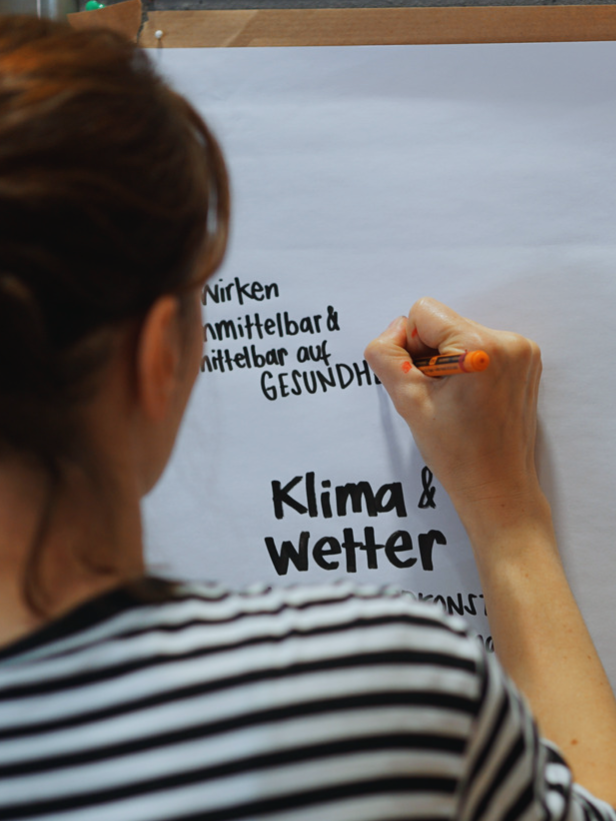 Wirken
nmittelbar &
mittelbar auf
GESUNDHE
Klima &
Wetter
KONST